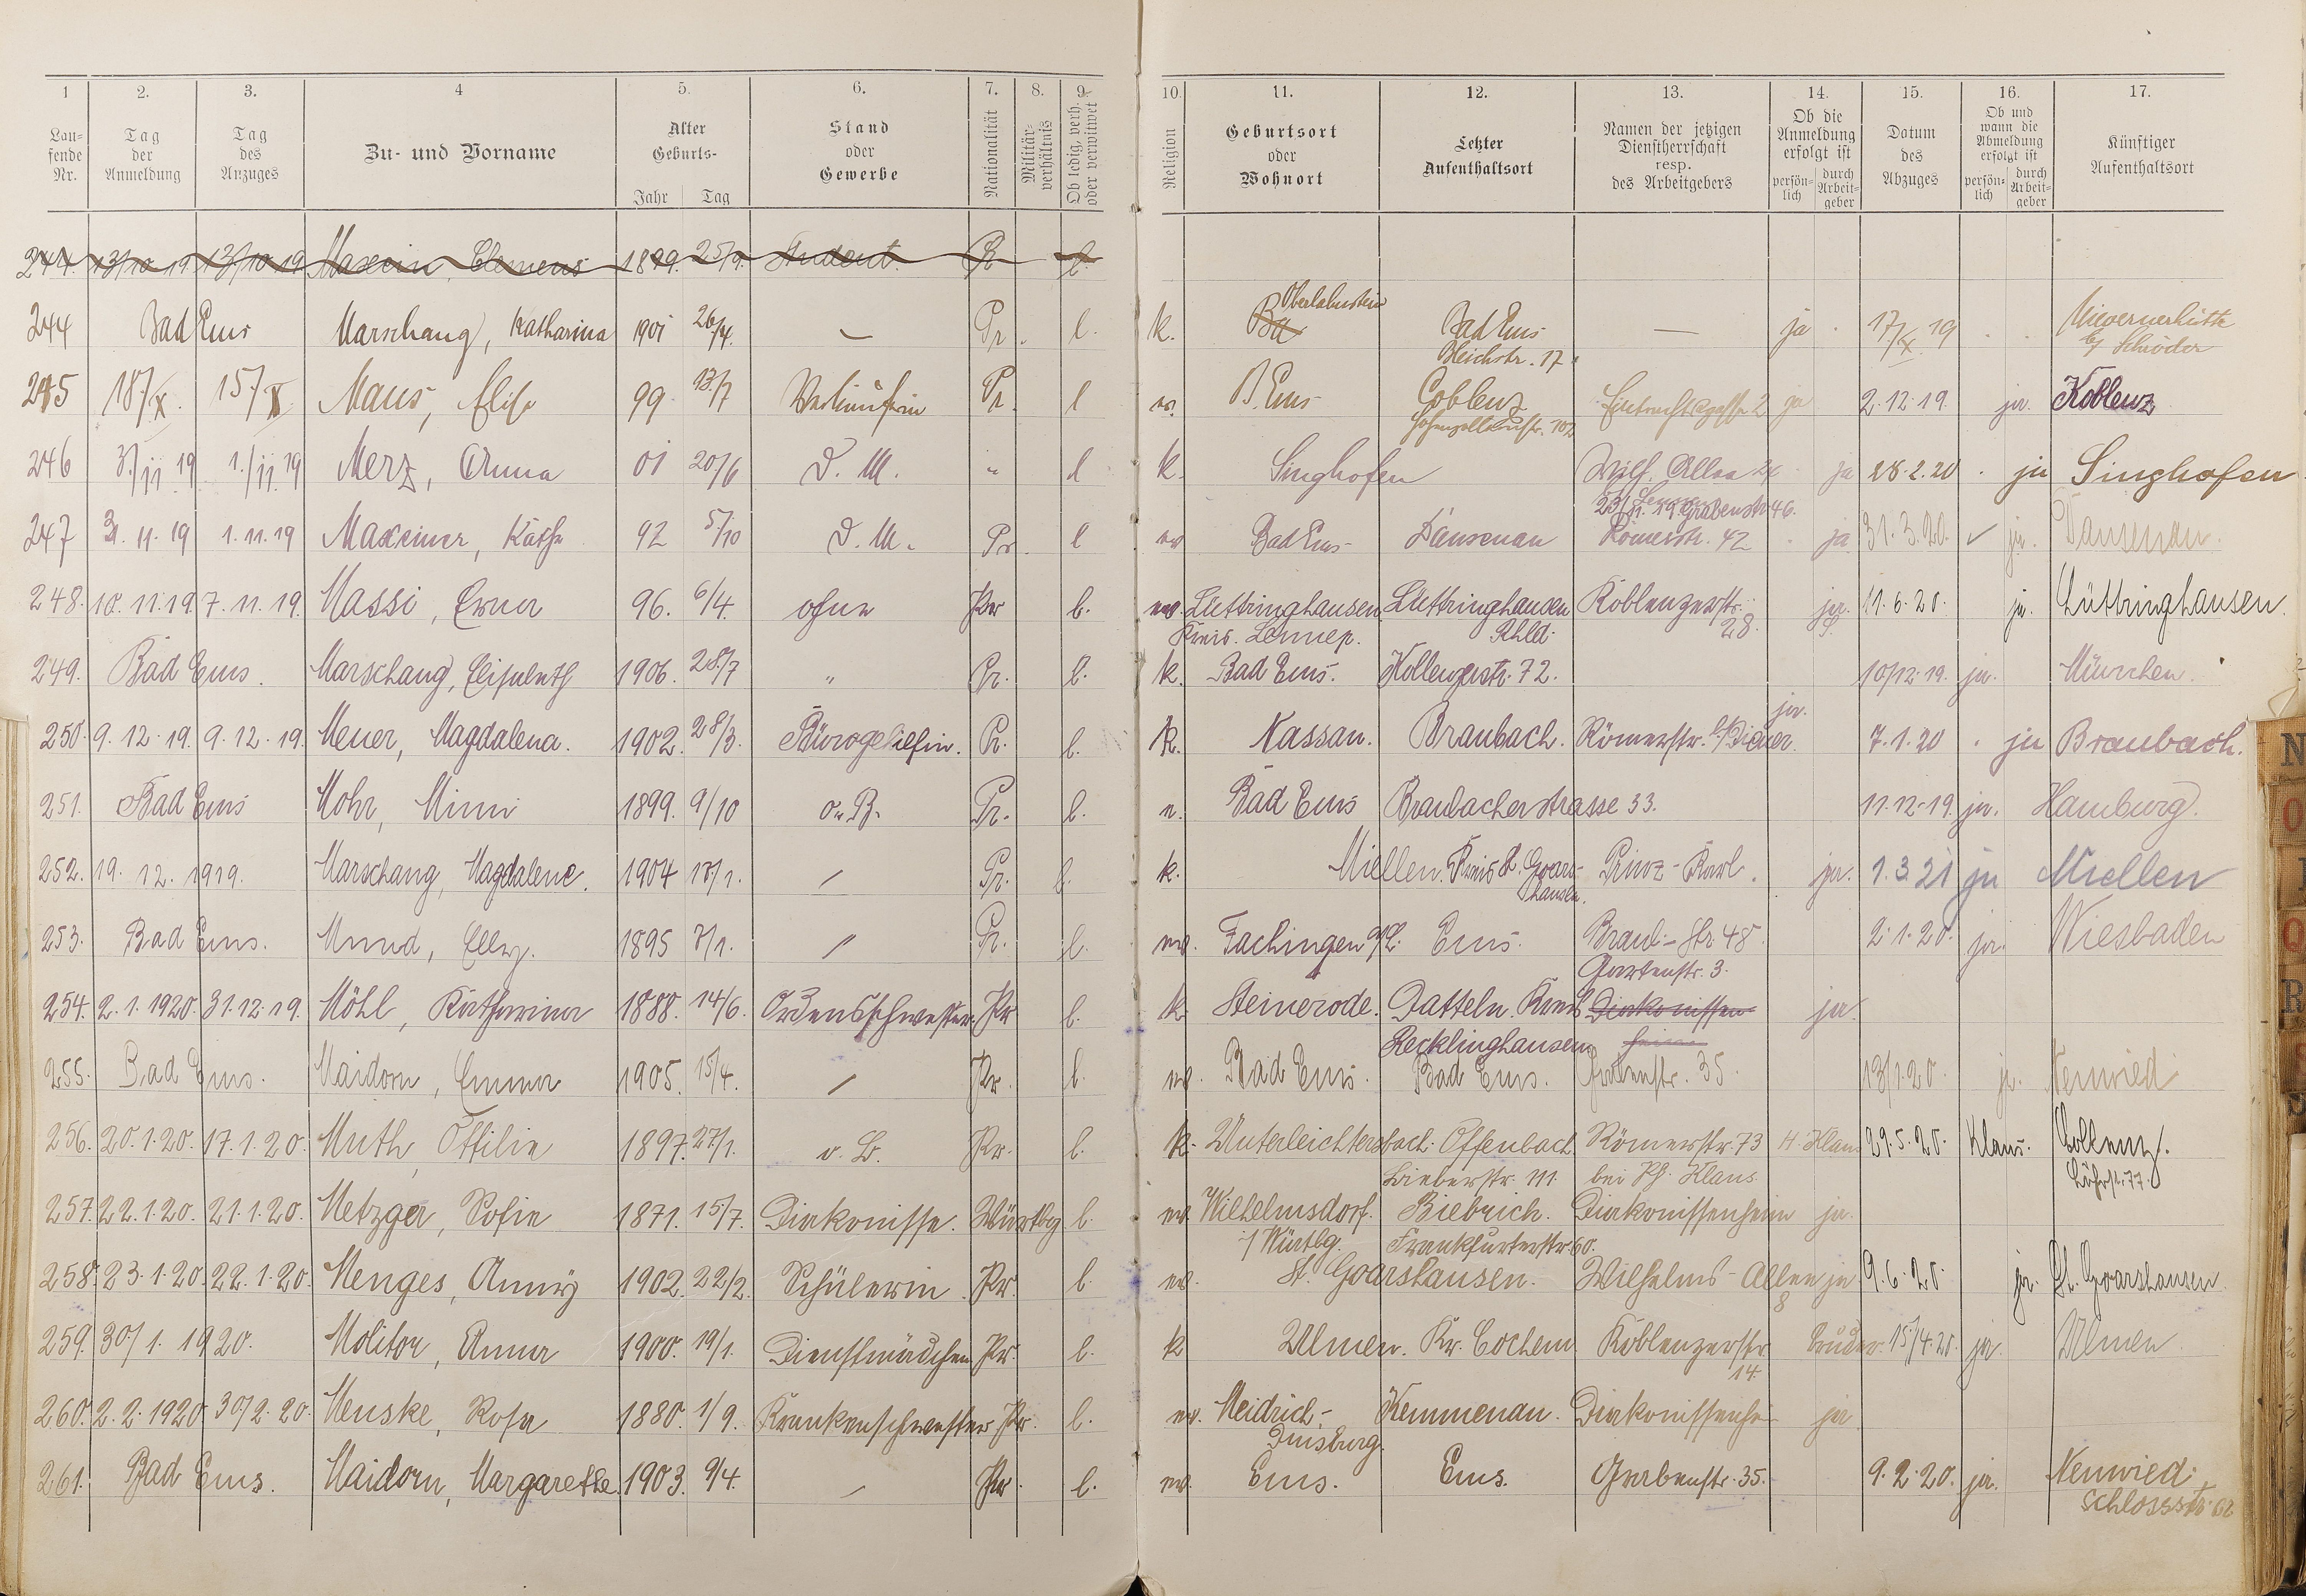 1 2. 3. 4 5. 6. 7. 8. 9. 10. 11. 12. 13. 14. 15. 16. 17.
Lau-fende Nr. Tag der Anmeldung Tag des Anzuges Zu- und Vorname Alter Geburts- Jahr Tag Stand oder Gewerbe Nationalität Militär-verhältnis Ob ledig, verh. oder verwitwet Religion Geburtsort oder Wohnort Letzter Aufenthaltsort Namen der jetzigen Dienstherrschaft resp. des Arbeitgebers Ob die Anmeldung erfolgt ist persön-lich durch Arbeit-geber Datum des Abzuges Ob und wann die Abmeldung erfolgt ist persön-lich durch Arbeit-geber Künftiger Aufenthaltsort
244. 13/10 19 13/10 19 Maxein, Clemens 1899. 25/9. Student. Pr l.
Oberlahnstein
244 Bad Ems Marschang, Katharina 1901 26/4. — Pr. l. k. Bad Ems — ja 17/X 19 Mievernerhütte
Bleichstr. 17 b/ Schröder
245 18/X. 15/X Maus, Elise 99 13/7 Verkäuferin Pr. l B. Ems Coblenz 2 ja 2.12.19 ja. Koblenz
Hohenzollernstr. 102
246 3/11 19 1./11 19 Merz, Anna 01 20/6 D. M. " l k. Singhofen Wilh. Allee ja 28.2.20 ja Singhofen
Grabenstr 46.
247 3. 11. 19 1. 11. 19 Maxeiner, Käthe 92 5/10 D. M. Pr. l Bad Ems Dausenau Römerstr. 42 ja 31.3.20. ja. Dausenau.
248. 10. 11. 19. 7. 11. 19. Massi, Erna 96. 6/4. ohne Pr l. ev. Lüttringhausen Lüttringhausen Koblenzerstr. ja. 11.6.20. ja. Lüttringhausen.
Kreis. Lennep. Rhld. 28.
249. Bad Ems. Marschang, Elisabeth 1906. 28/7 " Pr. l. k. Bad Ems. Koblenzerstr. 72. 10/12.19. ja. München.
ja.
250. 9. 12. 19. 9. 12. 19. Meuer, Magdalena. 1902. 28/3. Bürogehilfin. Pr. l. k. Nassau. Braubach. Römerstr. 7.1.20 ja Braubach.
251. Bad Ems Mohr, Minni 1899. 9/10 o. B. Pr. l. Bad Ems Braubacherstrasse 33. 11.12.19. ja. Hamburg.
252. 19. 12. 1919. Marschang, Magdalene. 1904 Pr. l. k. Miellen. Kreis St. Goars- Prinz-Karl. ja. 1.3.21 ja Miellen
hausen.
253. Bad Ems. Mund, Elly. 1895 7/1. Pr. l. ev. Fachingen a/L. Ems. Braub.-Str. 48 2.1.20. ja. Wiesbaden
Gartenstr. 3.
254. 2. 1. 1920. 31. 12. 19. Möhl, Katharina 1888. 14/6. Ordensschwester Pr l. k. Steinerode. Datteln. Kreis Diakonissen ja.
Recklinghausen heim
255. Bad Ems. Maidorn, Emma 1905. 15/4. Pr. l. ev. Bad Ems. Bad Ems. Grabenstr. 35. 13/1.20. ja. Neuwied
256. 20. 1. 20. 17. 1. 20. Muth, Ottilie 1897. 27/1. o. B. Pr. l. k. Unterleichtersbach. Offenbach Römerstr. 73 H. Klaus 29.5.20. Klaus. Coblenz.
Bieberstr. 111. bei Ph. Klaus. Löhrstr. 77.
257. 22. 1. 20. 21. 1. 20. Metzger, Sofie 1871. 15/7. Diakonisse. Würtbg l. ev. Wilhelmsdorf. Biebrich. Diakonissenheim ja.
i/ Würtbg. Frankfurterstr 60.
258. 23. 1. 20. 22. 1. 20. Menges, Anny 1902. 22/2. Schülerin. Pr. l. ev. St. Goarshausen. Wilhelms-Allee ja 9.6.20. ja. St. Goarshausen
8
259. 30/1. 1920. Molitor, Anna 1900. 19/1. Dienstmädchen Pr. l. k Ulmen. Kr. Cochem Koblenzerstr Bruder. 15/4.20. ja. Ulmen.
14.
260. 2. 2. 1920 30/2. 20. Menske, Rosa 1880. 1/9. Krankenschwester Pr. l. ev. Meidrich- Kemmenau. Diakonissenhe ja
Duisburg.
261. Bad Ems. Maidorn, Margarethe 1903. 9/4. Pr. l. ev. Ems. Ems. Grabenstr. 35. 9.2.20. ja. Neuwied
Schlossstr 62